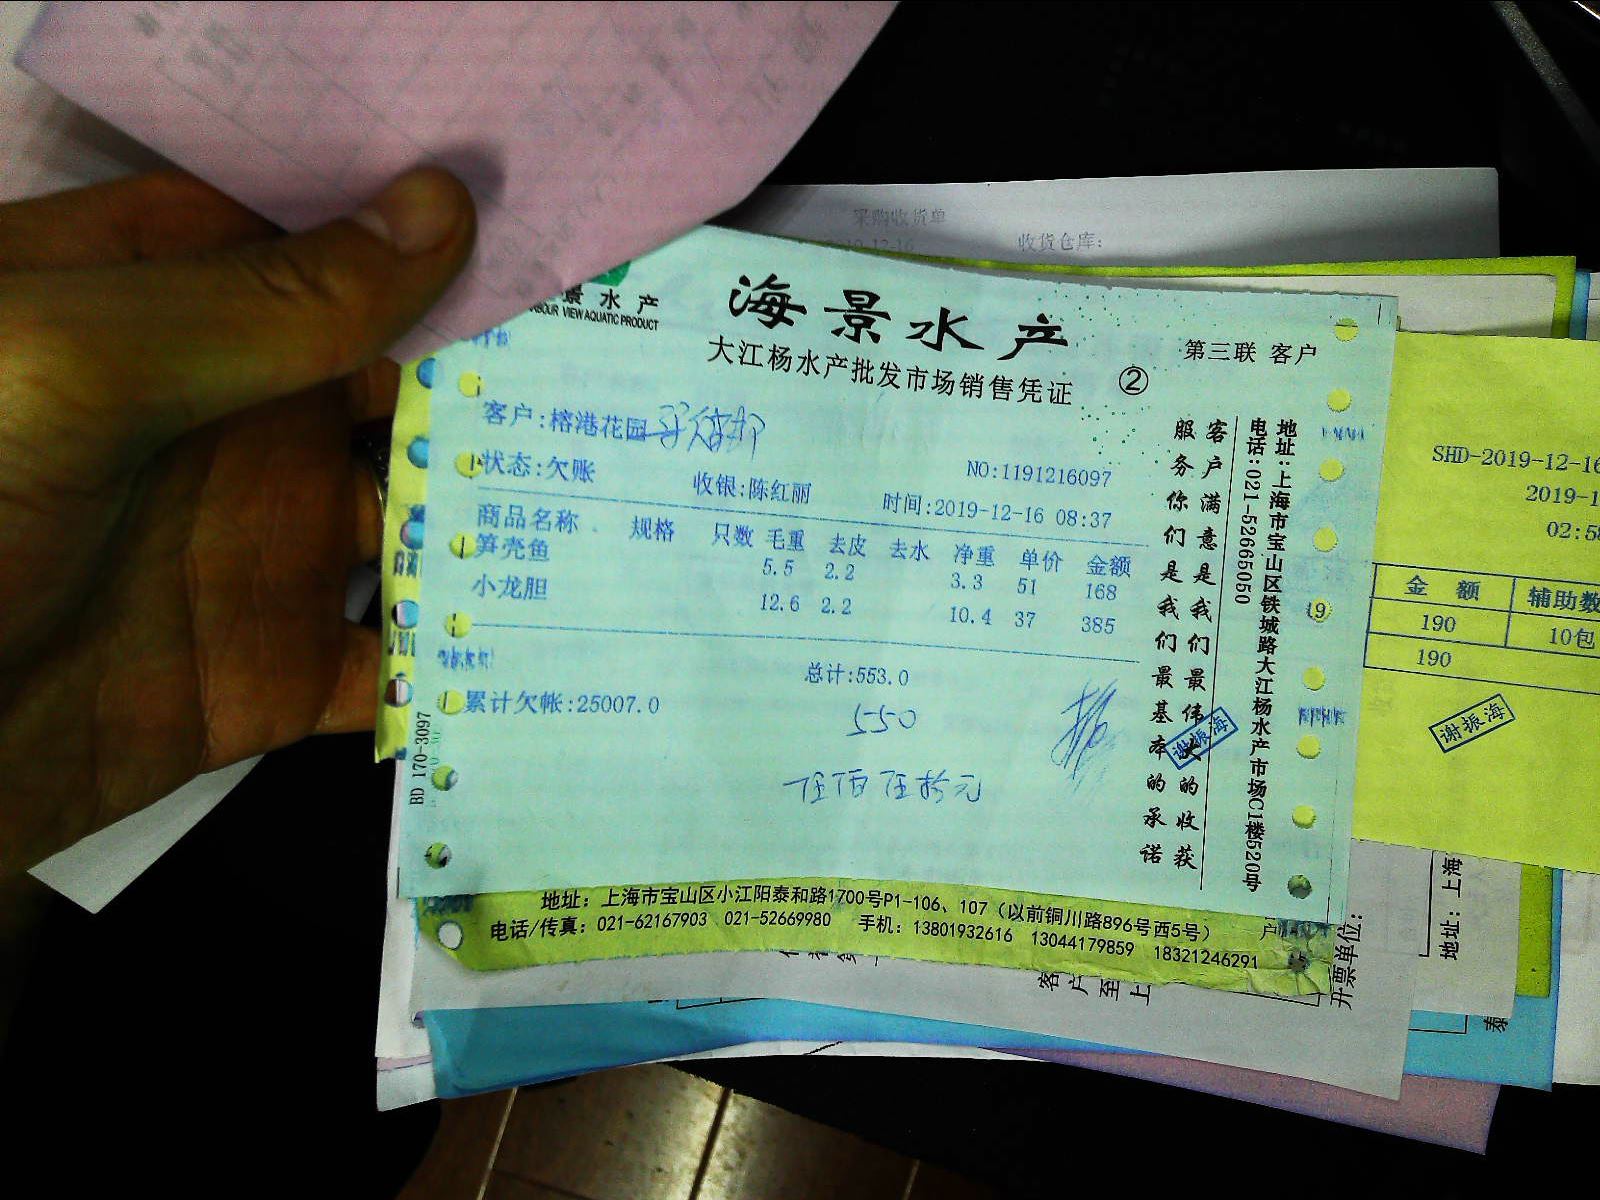 采购收货单
2019-12-16
收货仓库:
景水产
HARBOUR VIEW AQUATIC PRODUCT
海景水产
大江杨水产批发市场销售凭证
②
第三联 客户
客户:榕港花园
状态:欠账
收银:陈红丽
NO:1191216097
时间:2019-12-16 08:37
商品名称 规格 只数 毛重 去皮 去水 净重 单价 金额
笋壳鱼 5.5 2.2 3.3 51 168
小龙胆 12.6 2.2 10.4 37 385
总计:553.0
累计欠帐:25007.0
550
伍佰伍拾元
BD 170-3097
客户满意是我们最伟大的收获
服务你们是我们最基本的承诺
谢振海
地址:上海市宝山区铁城路大江杨水产市场C1楼520号
电话:021-52665050
地址: 上海市宝山区小江阳泰和路1700号P1-106、107（以前铜川路896号西5号）
电话/传真: 021-62167903 021-52669980 手机: 13801932616 13044179859 18321246291
SHD-2019-12-16
2019-1
02:58
金额 辅助数
190 10包
190
谢振海
客户至上
开票单位:
地址: 上海
泰